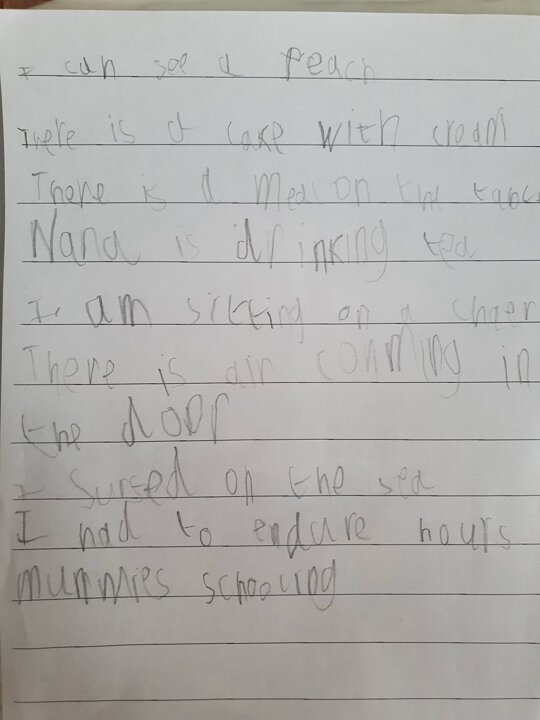 I can see a Peach
There is a cake with cream
There is a meal on the table
Nana is drinking tea
I am sitting on a chaer
There is air comming in
the door
I Surfed on the sea
I had to endure hours
mummies schooling